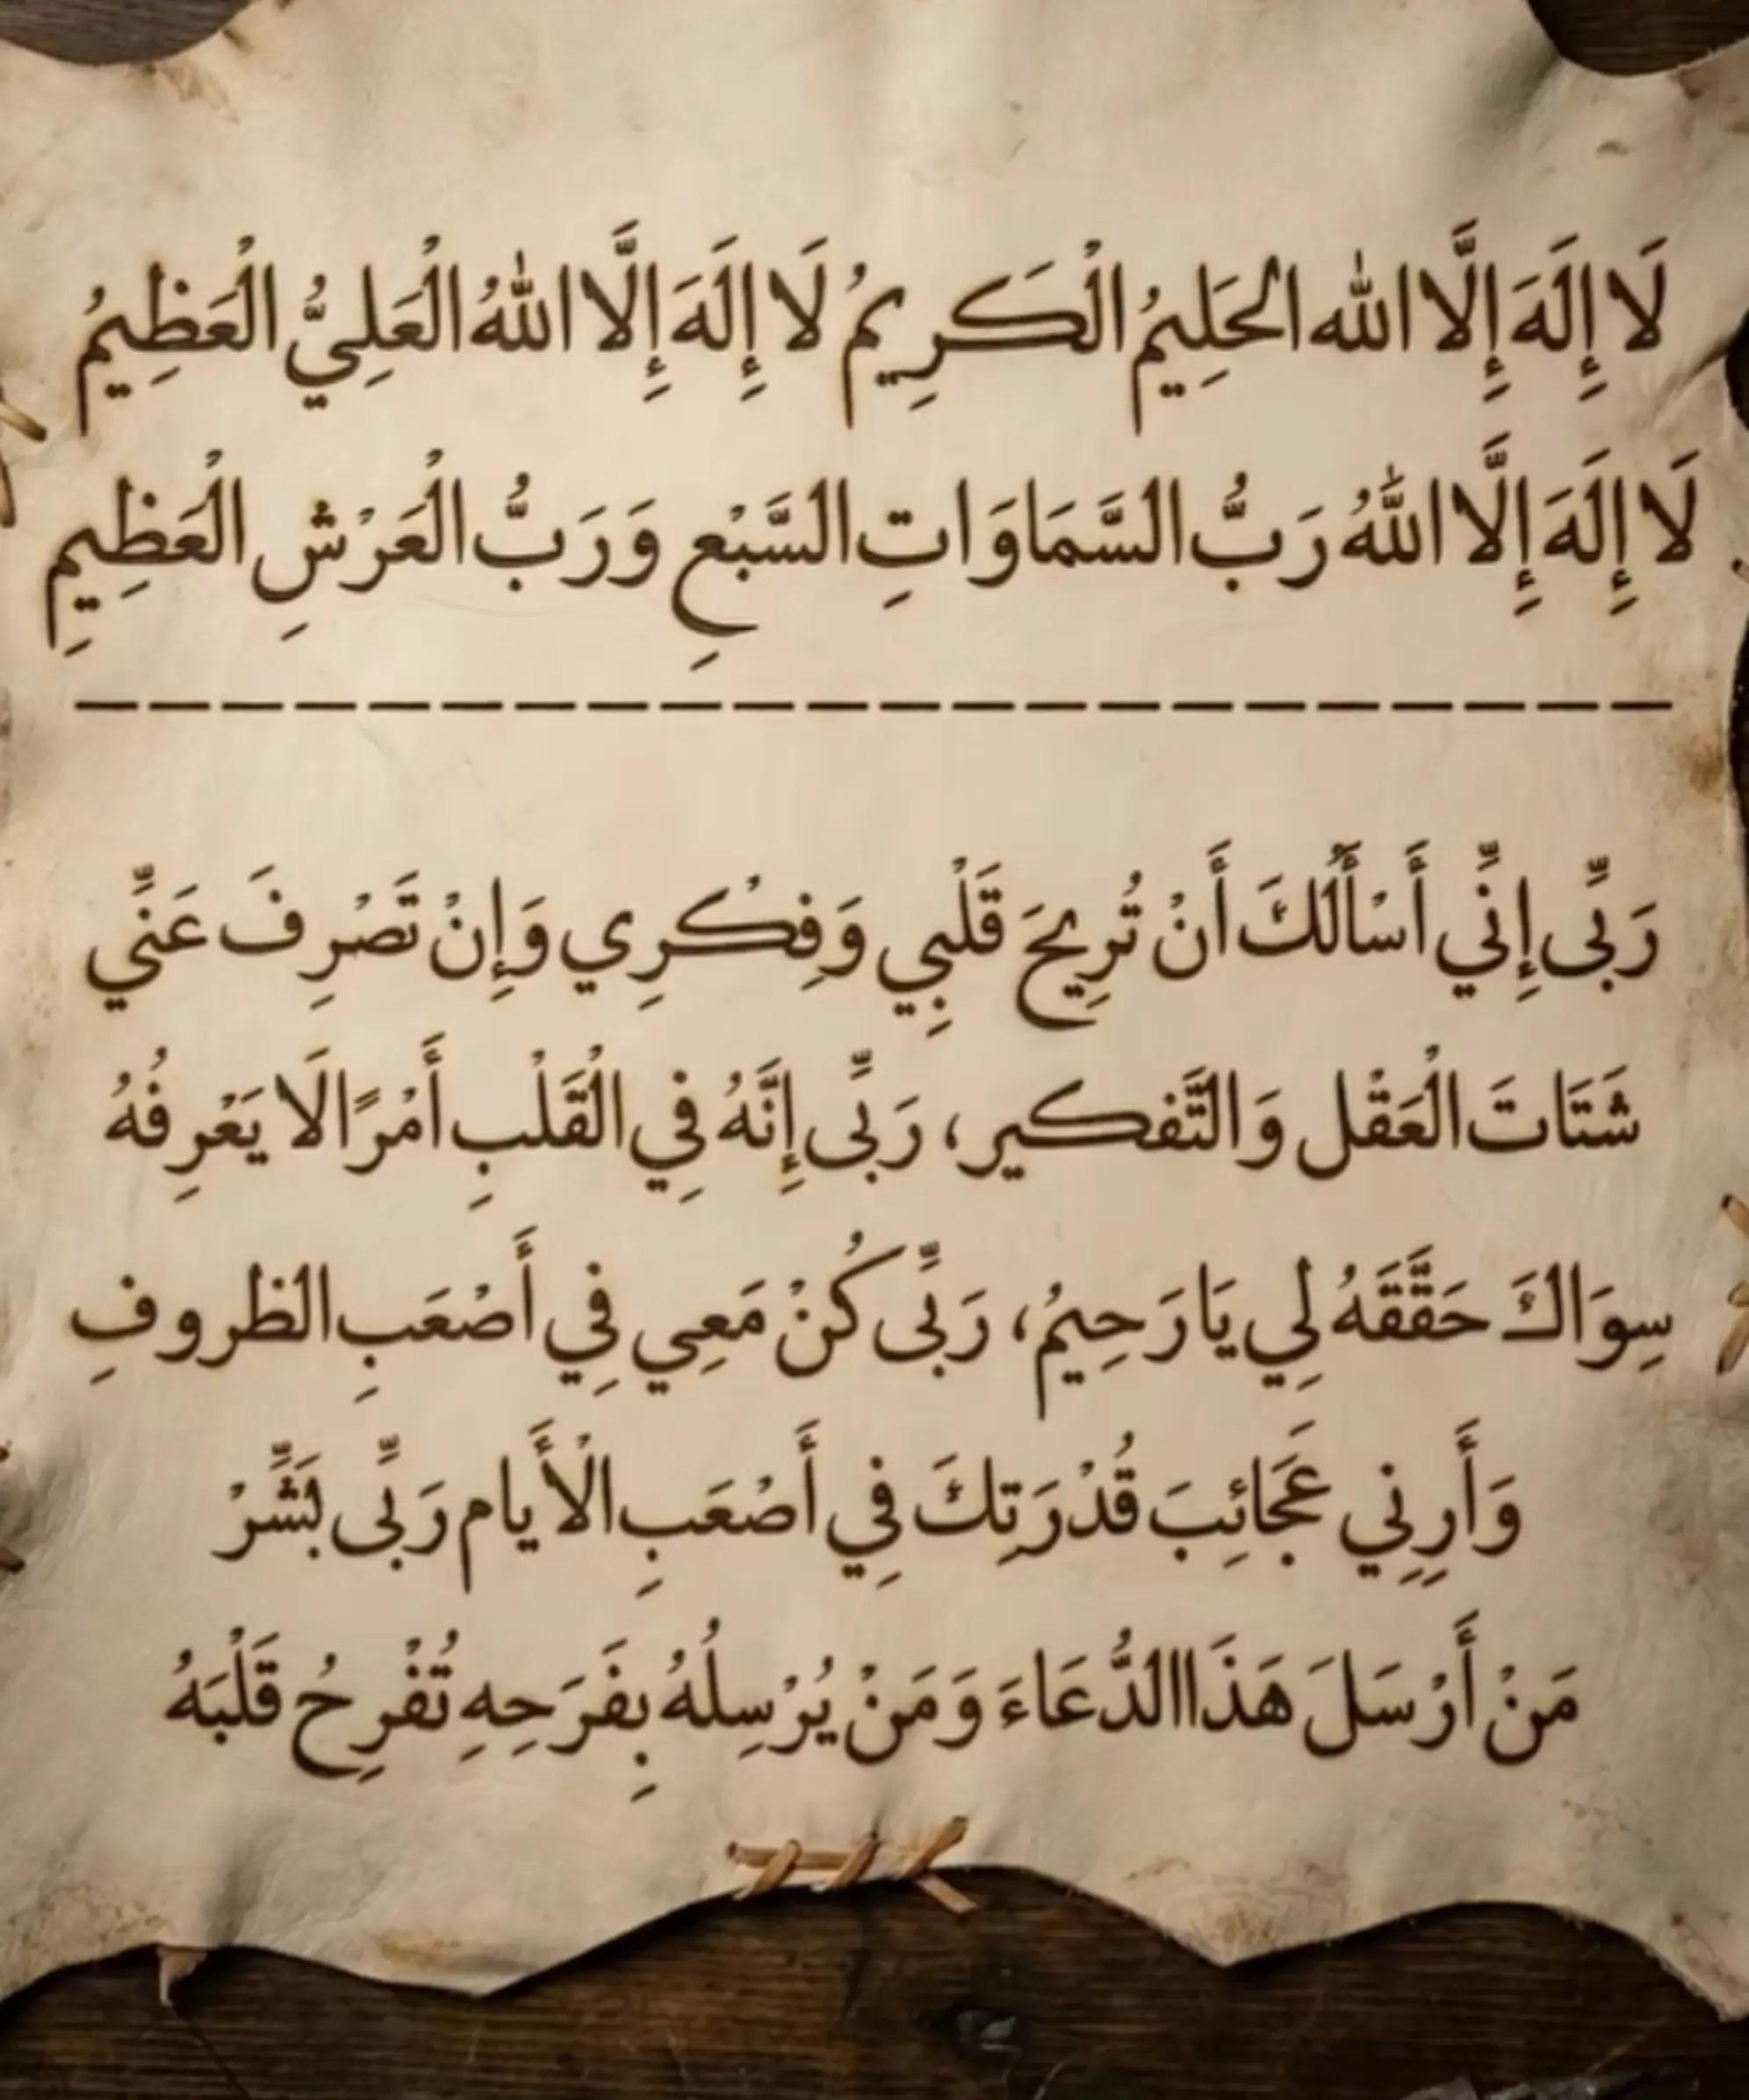 لَا إِلَهَ إِلَّا الله الحَلِيمُ الْكَرِيمُ لَا إِلَهَ إِلَّا اللهُ الْعَلِيُّ الْعَظِيمُ
لَا إِلَهَ إِلَّا اللهُ رَبُّ السَّمَاوَاتِ السَّبْعِ وَرَبُّ الْعَرْشِ الْعَظِيمِ
رَبِّى إِنِّي أَسْأَلُكَ أَنْ تُرِيحَ قَلْبِي وَفِكْرِي وَإِنْ تَصْرِفَ عَنِّي
شَتَاتَ الْعَقْل وَالتَّفكير، رَبِّى إِنَّهُ فِي الْقَلْبِ أَمْرًا لَا يَعْرِفُهُ
سِوَاكَ حَقَّقَهُ لِي يَا رَحِيمُ، رَبِّى كُنْ مَعِي فِي أَصْعَبِ الظروفِ
وَأَرِنِي عَجَائِبَ قُدْرَتِكَ فِي أَصْعَبِ الْأَيام رَبِّى بَشِّرْ
مَنْ أَرْسَلَ هَذَا الدُّعَاءَ وَمَنْ يُرْسِلُهُ بِفَرَحِهِ تُفْرِحُ قَلْبَهُ